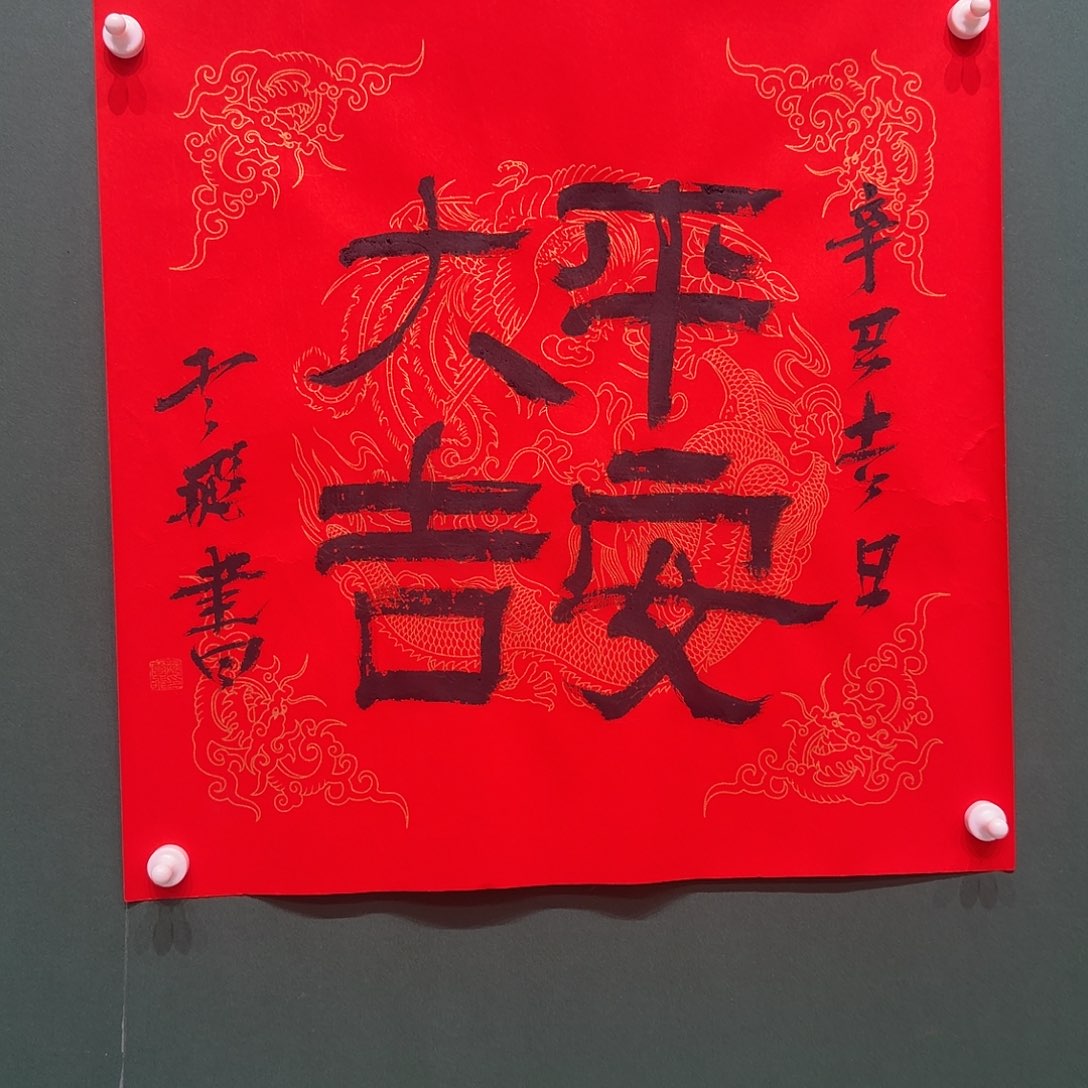 辛丑吉日
平安
大吉
云飛書